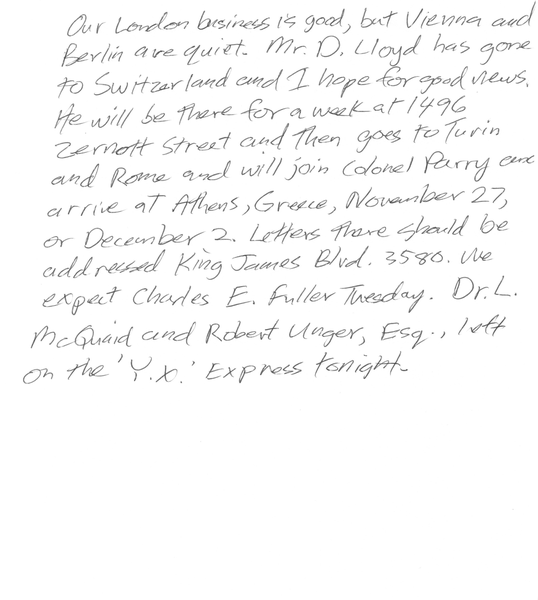 Our London business is good, but Vienna and
Berlin are quiet. Mr. D. Lloyd has gone
to Switzerland and I hope for good news.
He will be there for a week at 1496
Zermott Street and then goes to Turin
and Rome and will join Colonel Parry and
arrive at Athens, Greece, November 27,
or December 2. Letters there should be
addressed King James Blvd. 3580. We
expect Charles E. Fuller Tuesday. Dr. L.
McQuaid and Robert Unger, Esq., left
on the 'Y.X.' Express tonight.